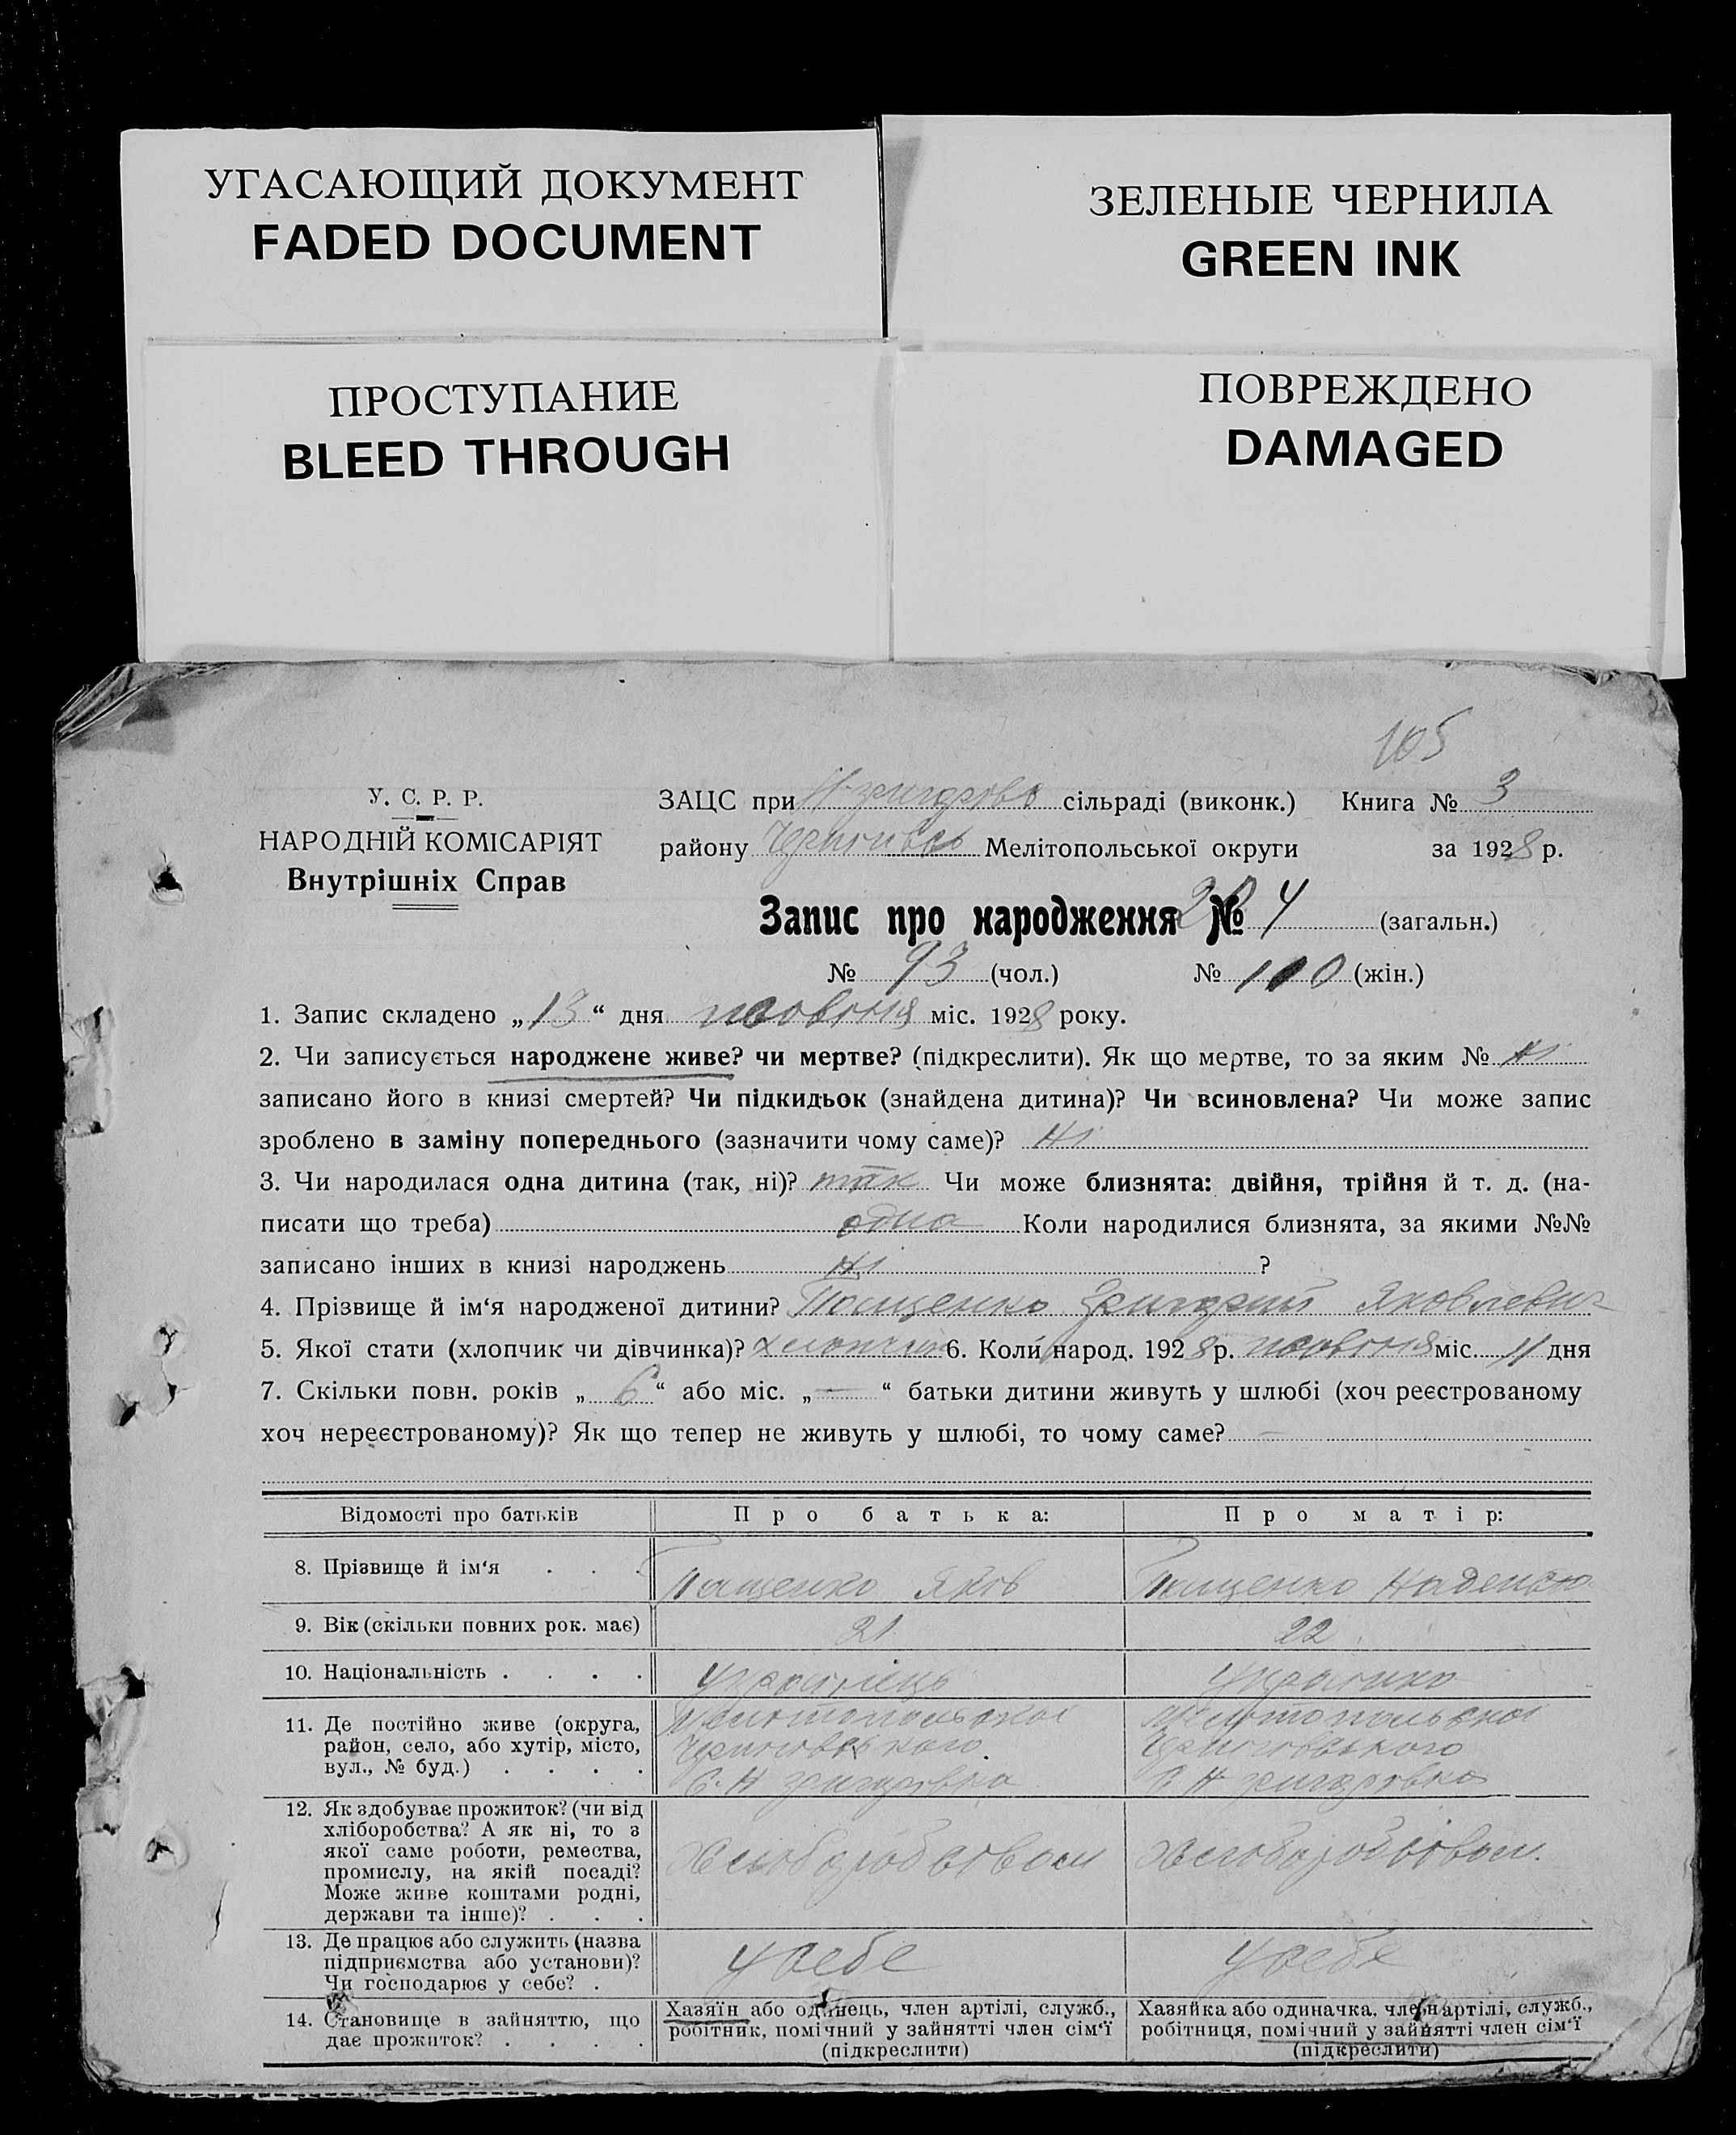 УГАСАЮЩИЙ ДОКУМЕНТ
FADED DOCUMENT
ЗЕЛЕНЫЕ ЧЕРНИЛА
GREEN INK
ПРОСТУПАНИЕ
BLEED THROUGH
ПОВРЕЖДЕНО
DAMAGED
105
У. С. Р. Р.
НАРОДНІЙ КОМІСАРІЯТ
Внутрішніх Справ
ЗАЦС при сільраді (виконк.) Книга № 3
району Мелітопольської округи за 1928 р.
Запис про народження № 204 (загальн.)
№ 93 (чол.) № 110 (жін.)
1. Запис складено „13“ дня жовтня міс. 1928 року.
2. Чи записується народжене живе? чи мертве? (підкреслити). Як що мертве, то за яким № Ні
записано його в книзі смертей? Чи підкидьок (знайдена дитина)? Чи всиновлена? Чи може запис
зроблено в заміну попереднього (зазначити чому саме)? Ні
3. Чи народилася одна дитина (так, ні)? так Чи може близнята: двійня, трійня й т. д. (на-
писати що треба) одна Коли народилися близнята, за якими №№
записано інших в книзі народжень Ні ?
4. Прізвище й ім‘я народженої дитини? Пащенко Григорий Яковлевич
5. Якої стати (хлопчик чи дівчинка)? хлопчик 6. Коли народ. 1928 р. жовтня міс. 11 дня
7. Скільки повн. років „ 6 “ або міс. „ — “ батьки дитини живуть у шлюбі (хоч реєстрованому
хоч нереєстрованому)? Як що тепер не живуть у шлюбі, то чому саме? —
Відомості про батьків
Про батька:
Про матір:
8. Прізвище й ім‘я . . .
Пащенко Яков
Пащенко
9. Вік (скільки повних рок. має)
21
22
10. Національність . . . .
Українець
Українка
11. Де постійно живе (округа,
район, село, або хутір, місто,
вул., № буд.) . . . .
Мелітопольской
Чернігівського
С. Н Григоровка
Мелітопольской
Чернігівського
С. Н Григоровка
12. Як здобуває прожиток? (чи від
хліборобства? А як ні, то з
якої саме роботи, ремества,
промислу, на якій посаді?
Може живе коштами родні,
держави та інше)? . . .
Хлебороб
Хлебороб
13. Де працює або служить (назва
підприємства або установи)?
Чи господарює у себе? .
У себе
У себе
14. Становище в зайняттю, що
дає прожиток? . . . .
Хазяїн або одинець, член артілі, служб.,
робітник, помічний у зайнятті член сім‘ї
(підкреслити)
Хазяйка або одиначка, член артілі, служб.,
робітниця, помічний у зайнятті член сім‘ї
(підкреслити)